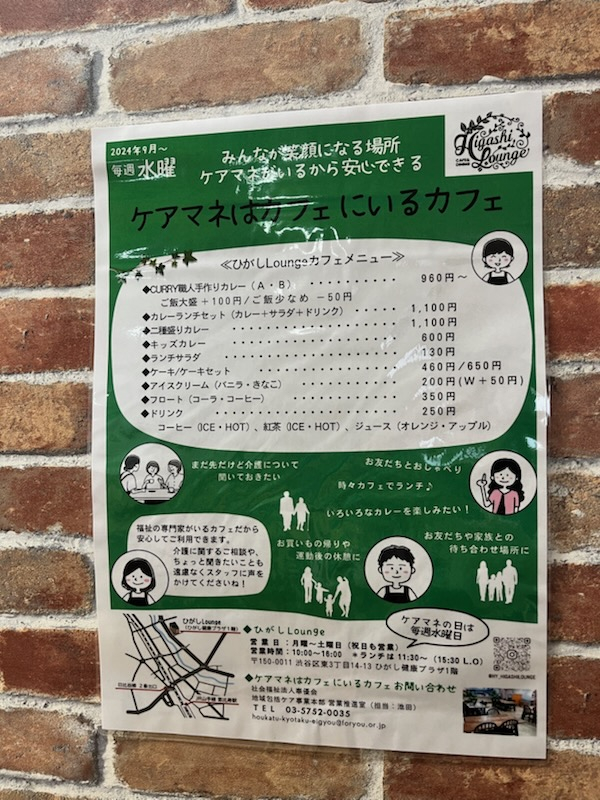 2024年9月〜
毎週 水曜
みんなが笑顔になる場所
ケアマネがいるから安心できる
Higashi
Lounge
ケアマネはカフェにいるカフェ
≪ひがしLoungeカフェメニュー≫
◆CURRY職人手作りカレー（A・B） ・・・・・・・・・・・ 960円〜
ご飯大盛＋100円/ご飯少なめ －50円
◆カレーランチセット（カレー＋サラダ＋ドリンク） ・・・・・・ 1,100円
◆二種盛りカレー ・・・・・・・・・・・・・・・・・ 1,100円
◆キッズカレー ・・・・・・・・・・・・・・・・・・ 600円
◆ランチサラダ ・・・・・・・・・・・・・・・・・・ 130円
◆ケーキ/ケーキセット ・・・・・・・・・・・・・・ 460円/650円
◆アイスクリーム（バニラ・きなこ） ・・・・・・・・・ 200円(W＋50円)
◆フロート（コーラ・コーヒー） ・・・・・・・・・・・ 350円
◆ドリンク ・・・・・・・・・・・・・・・・・・・・ 250円
コーヒー（ICE・HOT）、紅茶（ICE・HOT）、ジュース（オレンジ・アップル）
まだ先だけど介護について
聞いておきたい
お友だちとおしゃべり
時々カフェでランチ♪
いろいろなカレーを楽しみたい！
福祉の専門家がいるカフェだから
安心してご利用できます。
介護に関するご相談や、
ちょっと聞きたいことも
遠慮なくスタッフに声を
かけてくださいね！
お買いもの帰りや
運動後の休憩に
お友だちや家族との
待ち合わせ場所に
ケアマネの日は
毎週水曜日
ひがしLounge
（ひがし健康プラザ1階）
日比谷線 2番出口
JR山手線 恵比寿駅
◆ひがしLounge
営業日：月曜〜土曜日（祝日も営業）
営業時間：10:00〜16:00 ＊ランチは11:30〜（15:30 L.O）
〒150-0011 渋谷区東3丁目14-13 ひがし健康プラザ1階
@MY_HIGASHILOUNGE
◆ケアマネはカフェにいるカフェ お問い合わせ
社会福祉法人奉優会
地域包括ケア事業本部 営業推進室（担当：池田）
TEL 03-5752-0035
houkatu-kyotaku-eigyou@foryou.or.jp